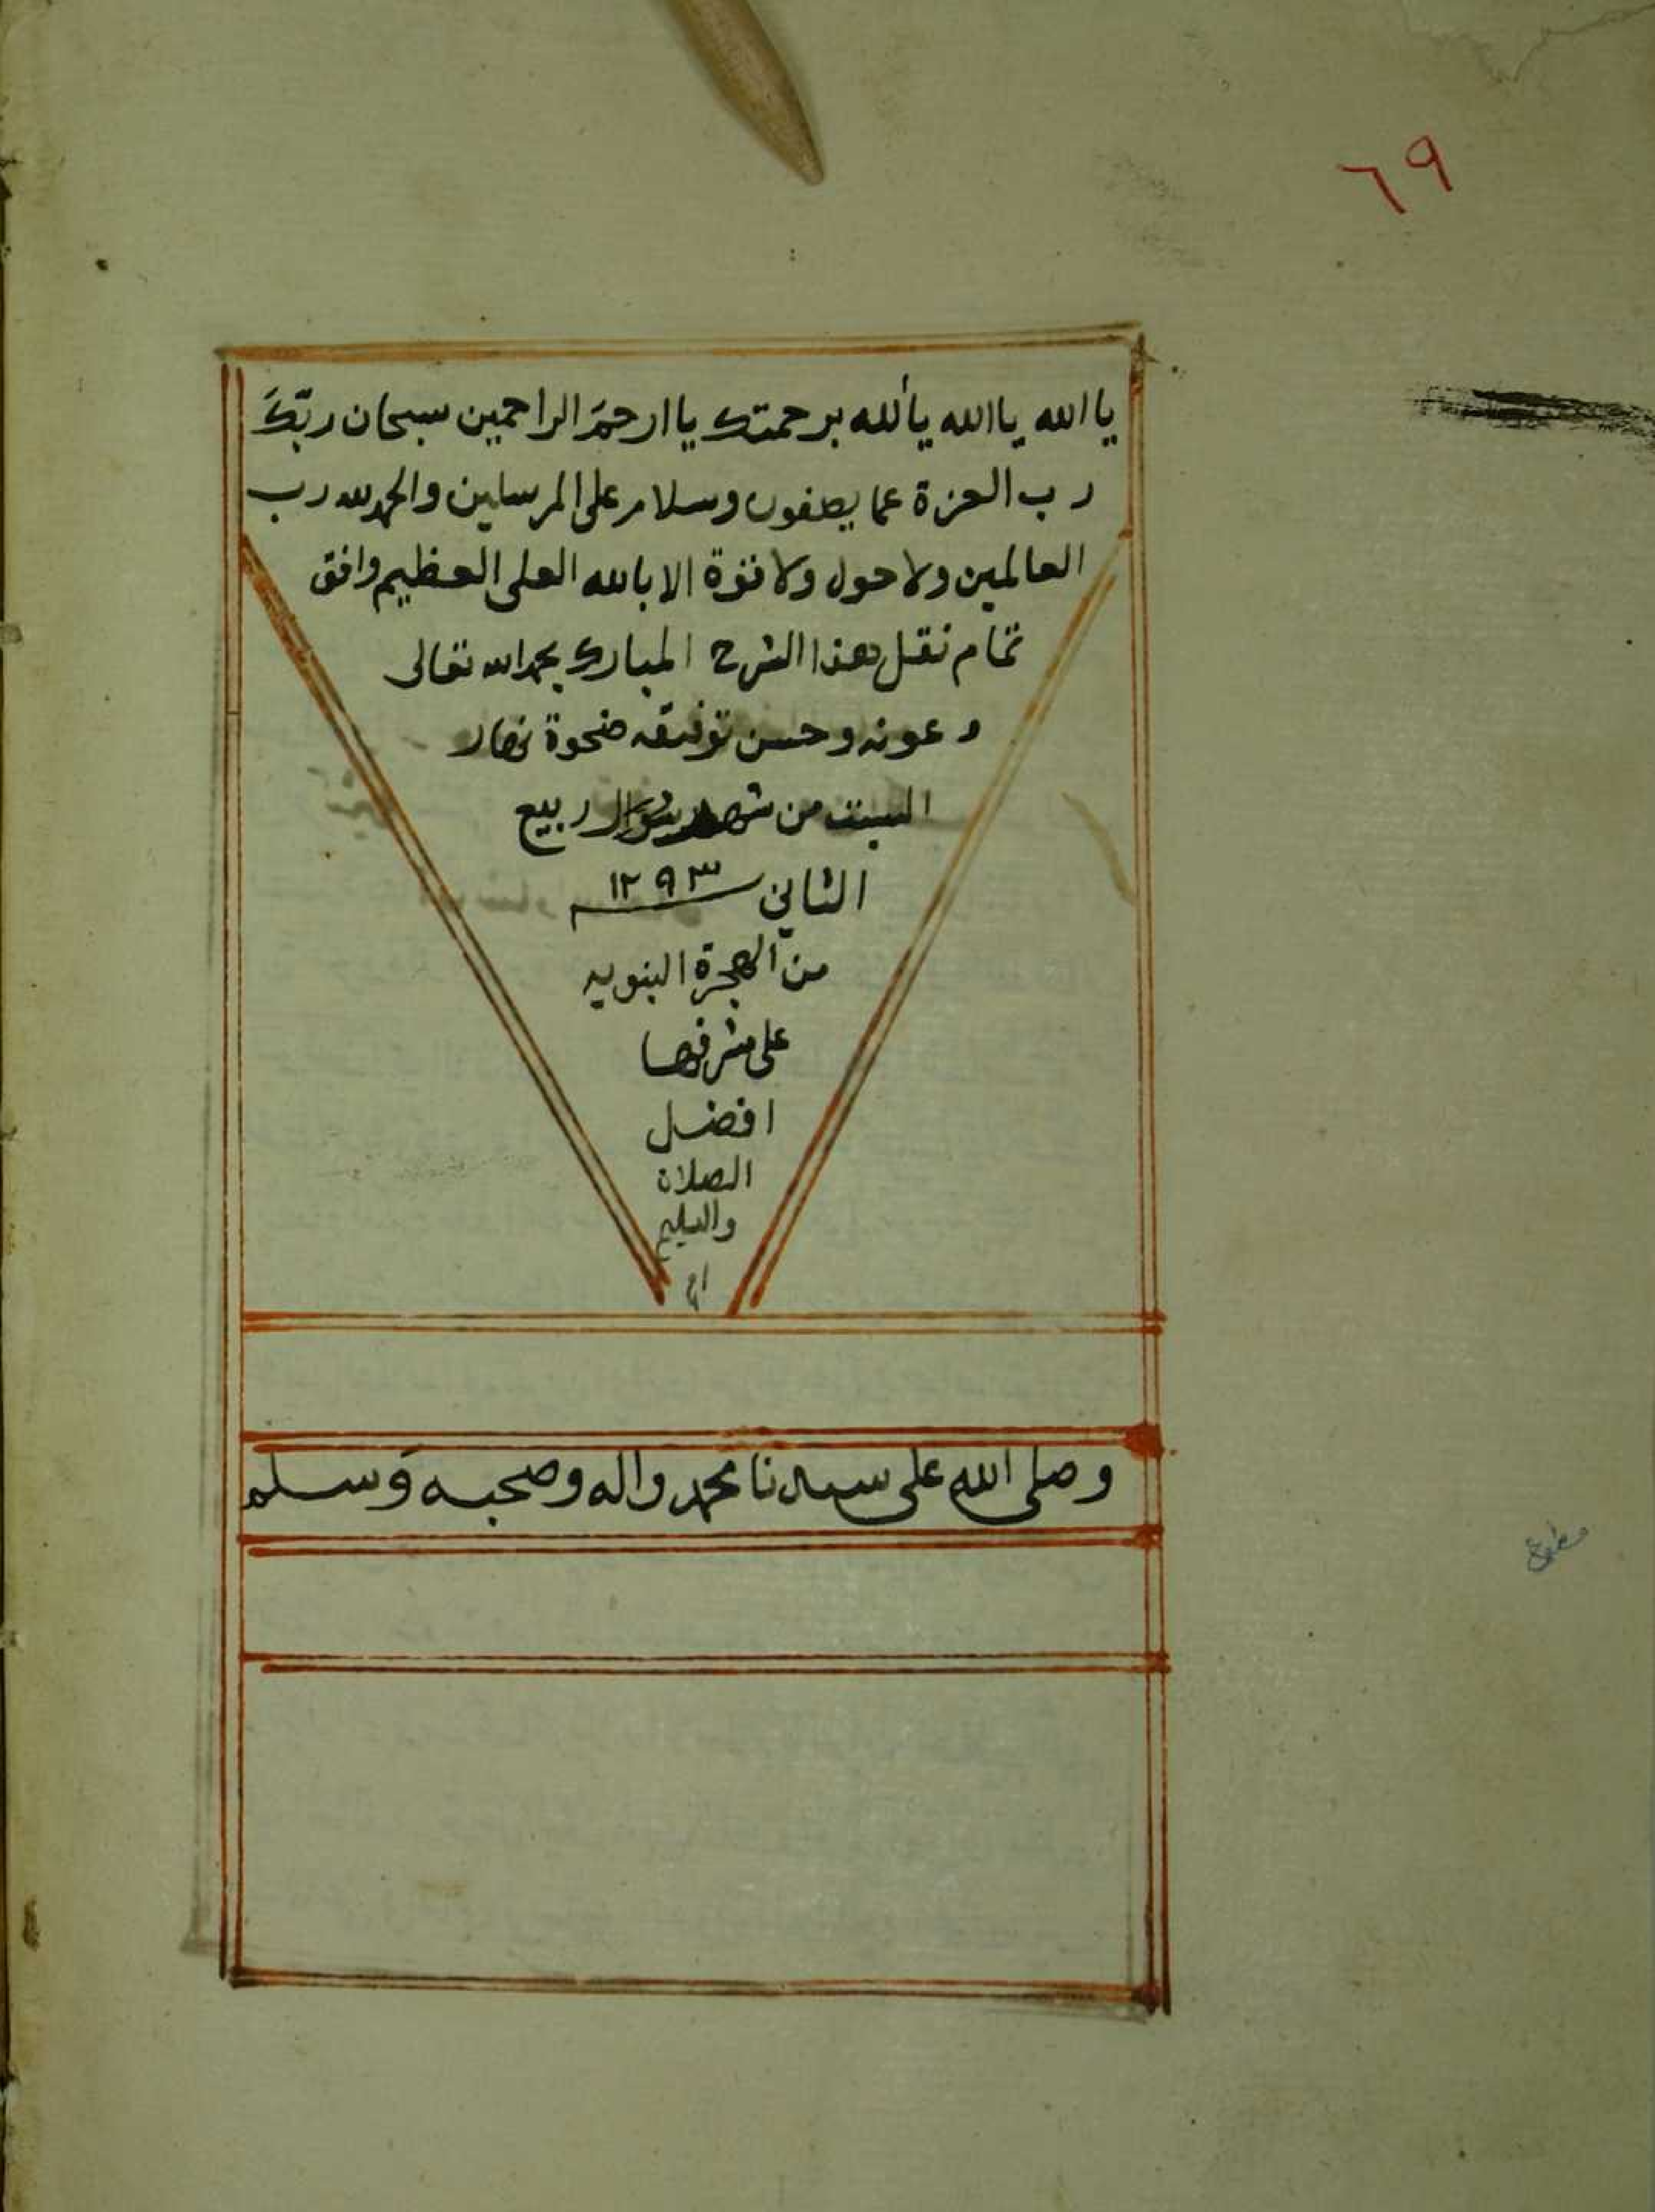 ٦٩
يا الله ياالله يالله برحمتك ياارحمَ الراحمين سبحان ربّكَ
رب العزة عما يصفون وسلام على المرسلين والحمد لله رب
العالمين ولا حول ولا قوة الا بالله العلى العظيم وافق
تمام نقل هذا الشرح المبارك بحمد الله تعالى
وعونه وحسن توفيقه ضحوة نهار
السبت من شهر ربيع
الثاني ١٢٩٣
من الهجرة النبويه
على مشرفها
افضل
الصلاة
والتسليم
وصلى الله على سيدنا محمد واله وصحبه وَسلم